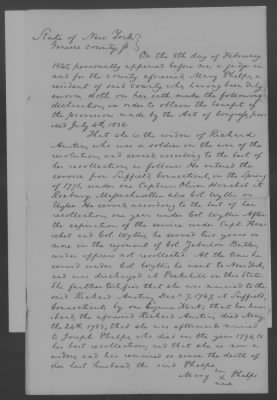 State of New York }
Genesee County ss }
On the 8th day of February
1845, personally appeared before me, a judge in
and for the county aforesaid, Mercy Phelps, a
resident of said county who having been duly
sworn doth on her oath make the following
declaration, in order to obtain the benefit of
the provision made by the Act of Congress pas-
sed July 4th 1836.
That she is the widow of Richard
Austin, who was a soldier in the war of the
revolution, and served according to the best of
her recollection, as follows: He entered the
service from Suffield, Connecticut, in the Spring
of 177, under one Captain
Roxbury Massachusetts also Col Wyllis or
Wylys He served, according to the best of her
recollection, one year under Col Wyllis After
the expiration of the service under Capt
and Col Wyllis, he served two years
more in the regiment of Col Jabadon Butler,
under officers not recollected. At the time he
served under Col Wyllis he went to New York,
and was discharged at Peekskill in this State.
She further testifies that she was married to the
said Richard Austin, Dec. 7, 1767, at Suffield,
Connecticut by one that her hus-
band, the aforesaid Richard Austin, died May
the 24th 1783; that she was afterwards married
to Joseph Phelps who died in the year 1794, to
her best recollection, and that she is now a
widow, and has remained so since the death of
her last husband, the said Phelps.
her
Mercy x Phelps
mark